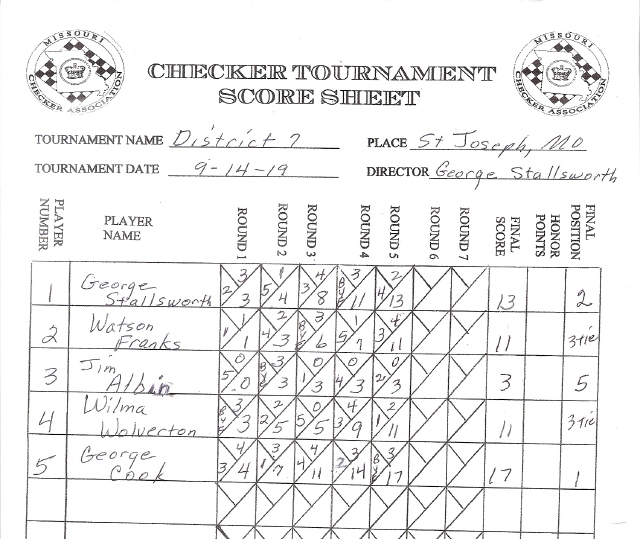 MISSOURI CHECKER ASSOCIATION
MISSOURI CHECKER ASSOCIATION
CHECKER TOURNAMENT
SCORE SHEET
TOURNAMENT NAME District 7 PLACE St Joseph, MO
TOURNAMENT DATE 9-14-19 DIRECTOR George Stallsworth
PLAYER NUMBER PLAYER NAME ROUND 1 ROUND 2 ROUND 3 ROUND 4 ROUND 5 ROUND 6 ROUND 7 FINAL SCORE HONOR POINTS FINAL POSITION
1 George Stallsworth 2 3 3 5 1 4 3 4 8 Bye 3 11 4 2 13 13 2
2 Watson Franks 1 1 1 4 2 3 Bye 3 6 5 1 7 3 4 11 11 3tie
3 Jim Albin 5 0 0 Bye 3 3 1 0 3 4 0 3 2 0 3 3 5
4 Wilma Wolverton Bye 3 3 2 2 5 5 0 5 3 4 9 1 2 11 11 3tie
5 George Cook 3 4 4 1 3 7 4 4 11 2 3 14 Bye 3 17 17 1